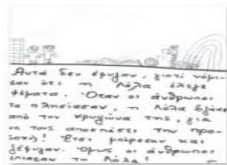 Αυτά δεν έφυγαν, γιατί νόμι-
σαν ότι η Λόλα έλεγε
ψέματα. Όταν οι άνθρωποι
τα πλησίασαν, η Λόλα βγήκε
από την κρυψώνα της, για
να τους αποσπάσει την προ-
σοχή! Έτσι μπόρεσαν και
ξέφυγαν. Όμως οι άνθρωποι
έπιασαν τη Λόλα!